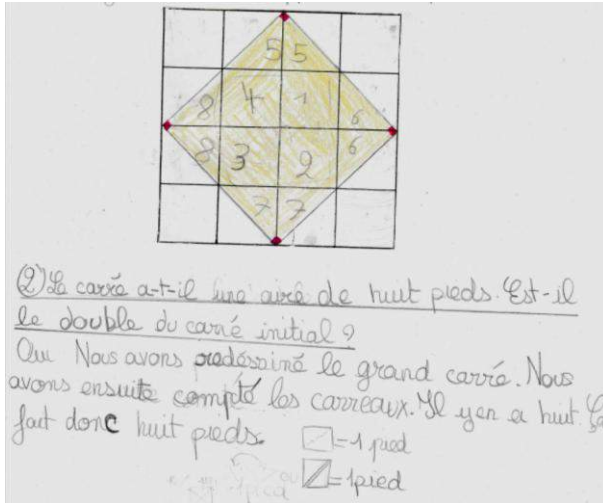 5 5
8 4 1 6
8 3 2 6
7 7
② Le carré a-t-il une aire de huit pieds. Est-il
le double du carré initial ?
Oui Nous avons redéssiné le grand carré. Nous
avons ensuite compté les carreaux. Il y en a huit. Ça
fait donc huit pieds.
= 1 pied
= 1 pied